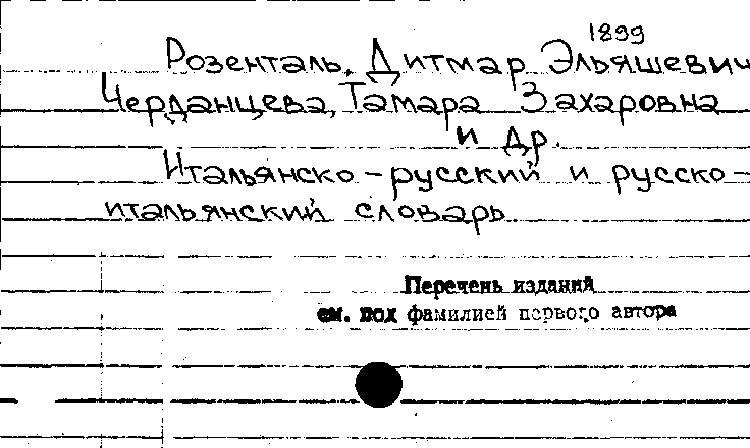 1899
Розенталь, Дитмар Эльяшевич
Черданцева, Тамара Захаровна
и др.
Итальянско-русский и русско-
итальянский словарь
Перечень изданий
см. под фамилией первого автора